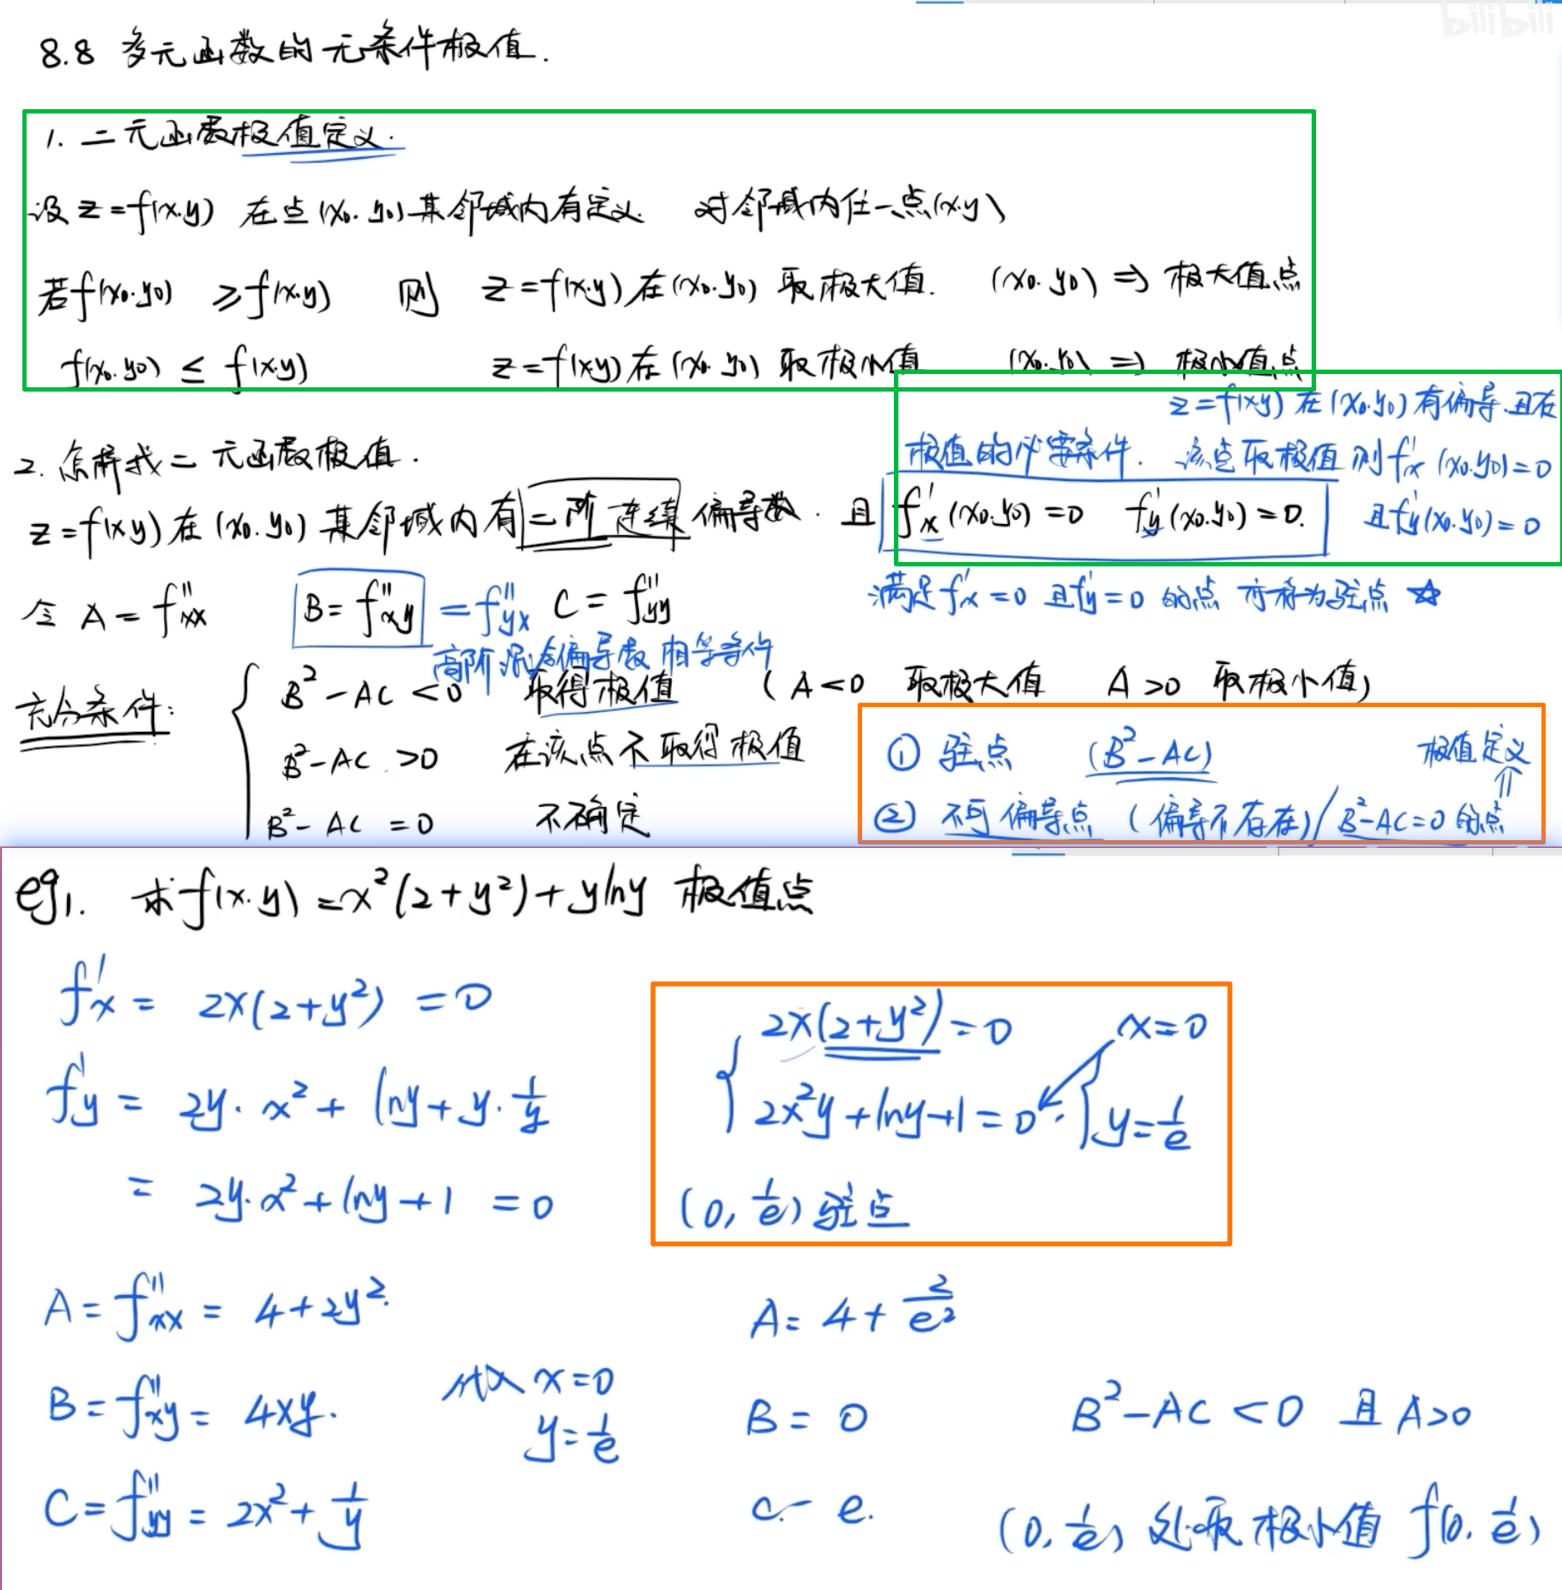 bilibili
8.8 多元函数的无条件极值.
1. 二元函数极值定义.
设 z=f(x.y) 在点(x₀.y₀)某邻域内有定义 对邻域内任一点(x.y)
若f(x₀.y₀) ≥f(x.y) 则 z=f(x.y)在(x₀.y₀) 取极大值. (x₀.y₀) ⇒ 极大值点
f(x₀.y₀) ≤ f(x.y) z=f(x.y)在(x₀.y₀) 取极小值 (x₀.y₀) ⇒ 极小值点
2. 怎样找二元函数极值.
z=f(x.y)在(x₀.y₀)有偏导.且在
极值的必要条件. 该点取极值则f'x(x₀.y₀)=0
且f'y(x₀.y₀)=0
z=f(x.y)在(x₀.y₀)某邻域内有二阶连续偏导数. 且 f'x(x₀.y₀)=0 f'y(x₀.y₀)=0.
满足f'x=0且f'y=0的点 亦称为驻点 ☆
令 A=f''xx B=f''xy =f''yx C=f''yy
高阶混合偏导数相等条件
充分条件:
B²-AC<0 取得极值 (A<0 取极大值 A>0 取极小值)
B²-AC>0 在该点不取得极值
B²-AC=0 不确定
① 驻点 (B²-AC) 极值定义
⇑
② 不可偏导点 (偏导不存在)/B²-AC=0的点
eg1. 求f(x.y)=x²(2+y²)+ylny 极值点
f'x = 2x(2+y²) =0
f'y = 2y·x²+lny+y·1/y
= 2y·x²+lny+1 =0
2x(2+y²)=0 x=0
2x²y+lny+1=0 y=1/e
(0,1/e)驻点
A=f''xx = 4+2y².
B=f''xy = 4xy.
C=f''yy = 2x²+1/y
代入 x=0
y=1/e
A= 4+2/e²
B= 0
C- e.
B²-AC<0 且A>0
(0,1/e)处取极小值 f(0,1/e)